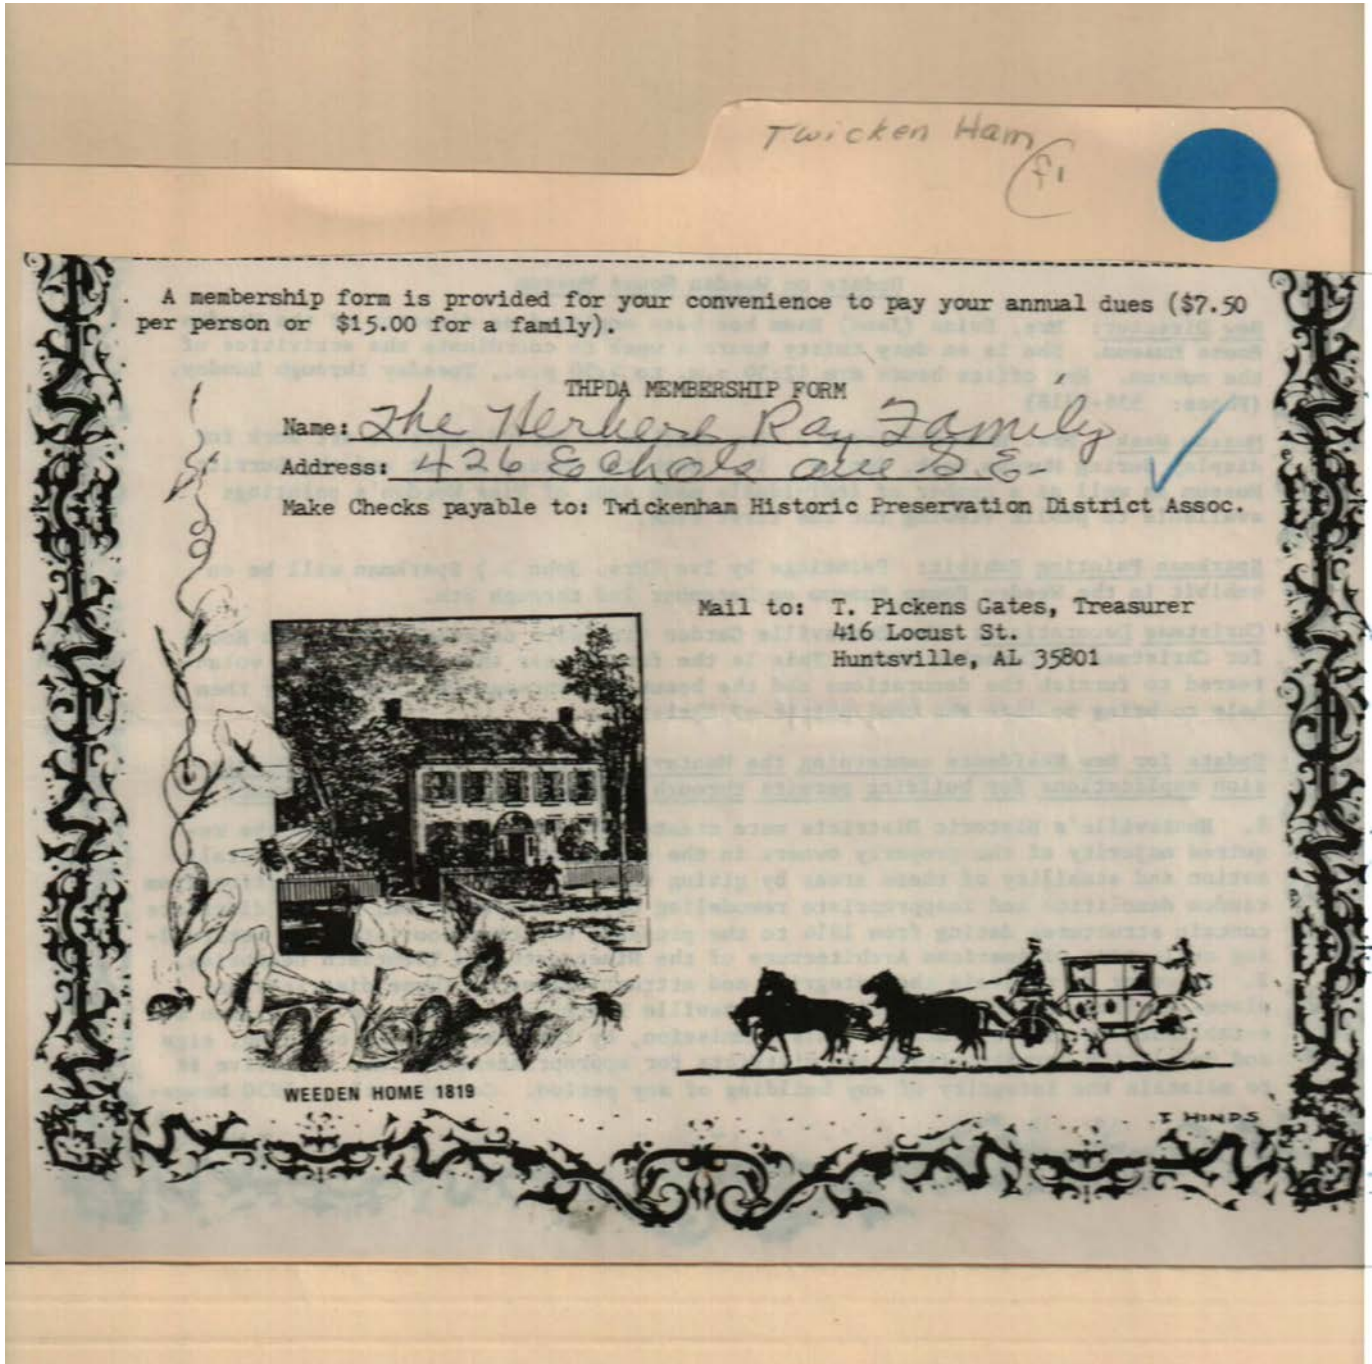 Twicken Ham
f1
A membership form is provided for your convenience to pay your annual dues ($7.50
per person or $15.00 for a family).
THPDA MEMBERSHIP FORM
Name: The Herbert Ray Family
Address: 426 Echols ave S E
Make Checks payable to: Twickenham Historic Preservation District Assoc.
Mail to: T. Pickens Gates, Treasurer
416 Locust St.
Huntsville, AL 35801
WEEDEN HOME 1819
T HINDS